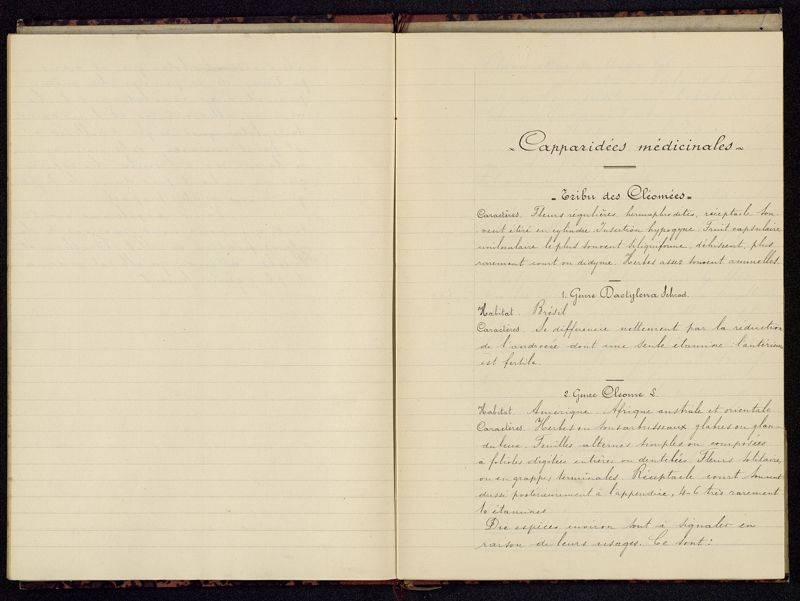 Capparidées médicinales
Tribu des Cléomées
Caractères. Fleurs régulières hermaphrodites, réceptacle sou-
vent étiré en cylindre. Insertion hypogyne. Fruit capsulaire
uniloculaire le plus souvent siliquiforme, déhiscent, plus
rarement court ou didyme. Herbes assez souvent annuelles
1. Genre Dactylena Schrad.
Habitat. Brésil
Caractères. Se différencie nettement par la réduction
de l'androcée dont une seule étamine : l'antérieure
est fertile.
2. Genre Cleome L.
Habitat. Amérique. Afrique australe et orientale
Caractères. Herbes ou sous arbrisseaux glabres ou glan-
duleux. Feuilles alternes simples ou composées
à folioles digitées entières ou dentelées. Fleurs solitaires
ou en grappes terminales. Réceptacle court souvent
postérieurement à l'appendice, 4-6 très rarement
10 étamines
Dix espèces environ sont à signaler en
raison de leurs usages. Ce sont :